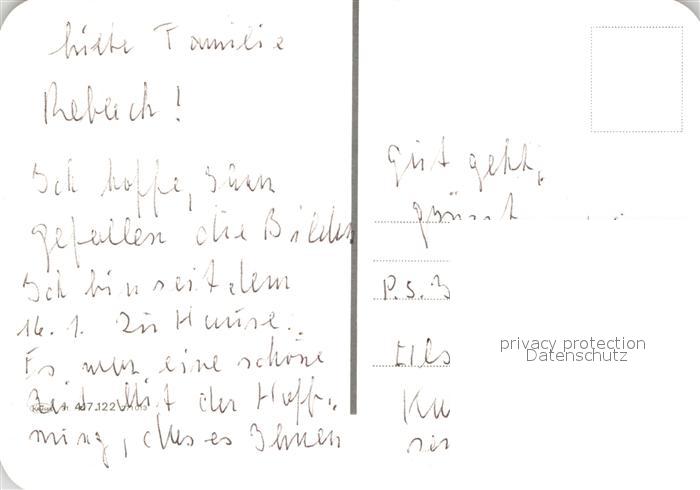 liebe Familie
Rebach!
Ich hoffe, Ihnen
gefallen die Bilder
Ich bin seit dem
16.1. zu Hause.
Es war eine schöne
Zeit. Mit der Hoff-
nung, dass es Ihnen
407.122
gut geht,
grüsst
P.S. I
privacy protection
Datenschutz